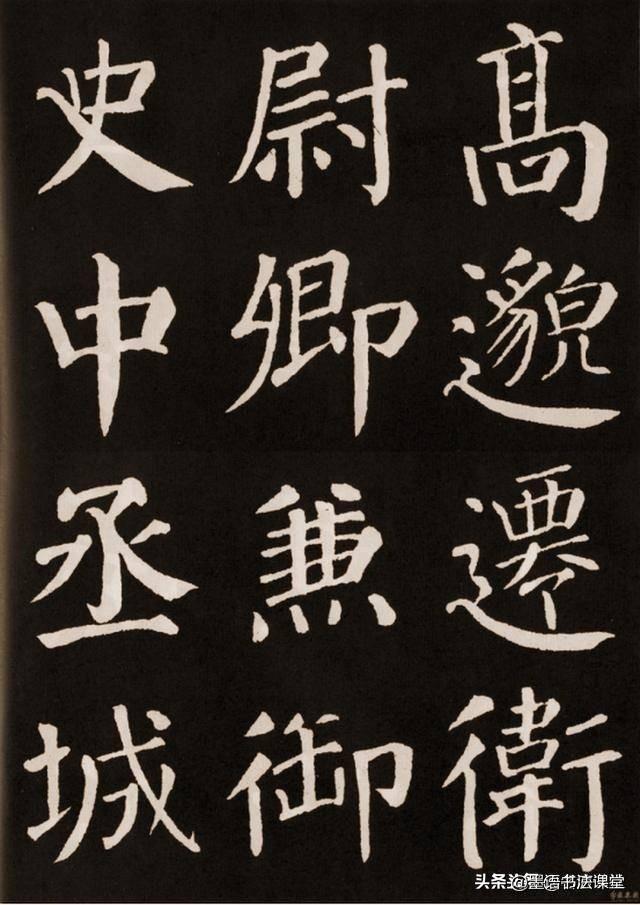 高邈遷衛
尉卿兼御
史中丞城
头条@墨语书法课堂